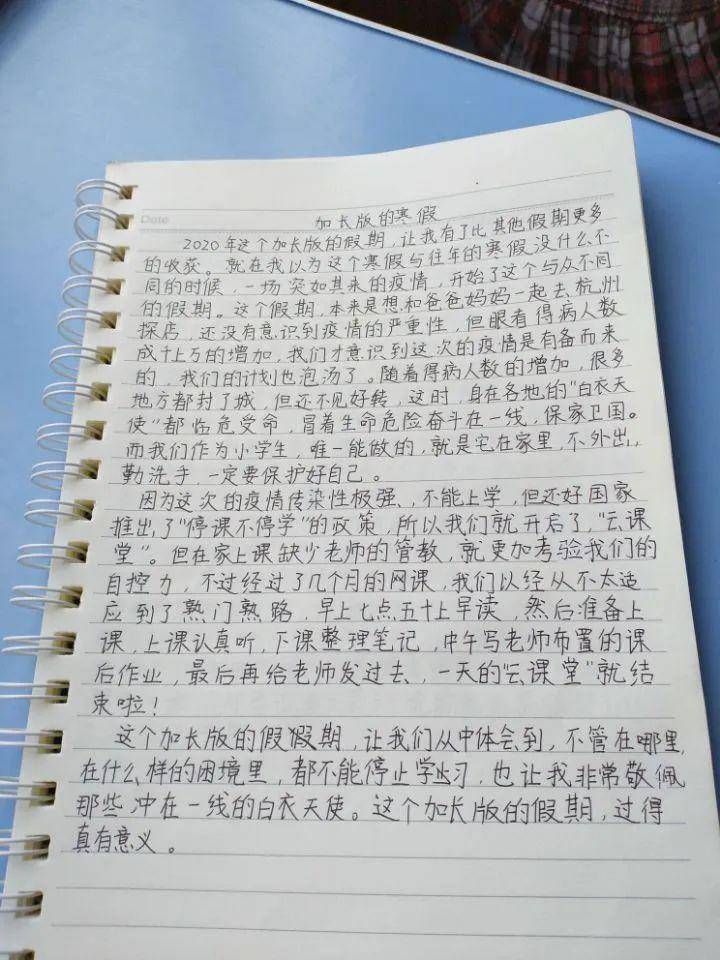 Date
加长版的寒假
2020年这个加长版的假期，让我有了比其他假期更多
的收获。就在我以为这个寒假与往年的寒假没什么不
同的时候，一场突如其来的疫情，开始了这个与众不同
的假期。这个假期，本来是想和爸爸妈妈一起去杭州
探店，还没有意识到疫情的严重性，但眼看得病人数
成十上万的增加，我们才意识到这次的疫情是有备而来
的，我们的计划也泡汤了。随着得病人数的增加，很多
地方都封了城，但还不见好转，这时，身在各地的“白衣天
使”都临危受命，冒着生命危险奋斗在一线，保家卫国。
而我们作为小学生，唯一能做的，就是宅在家里，不外出，
勤洗手，一定要保护好自己。
因为这次的疫情传染性极强、不能上学，但还好国家
推出了“停课不停学”的政策，所以我们就开启了，“云课
堂”。但在家上课缺少老师的管教，就更加考验我们的
自控力，不过经过了几个月的网课，我们以经从不太适
应到了熟门熟路，早上七点五十上早读，然后准备上
课，上课认真听，下课整理笔记，中午写老师布置的课
后作业，最后再给老师发过去、一天的“云课堂”就结
束啦！
这个加长版的假假期，让我们从中体会到，不管在哪里，
在什么样的困境里，都不能停止学习，也让我非常敬佩
那些冲在一线的白衣天使。这个加长版的假期，过得
真有意义。